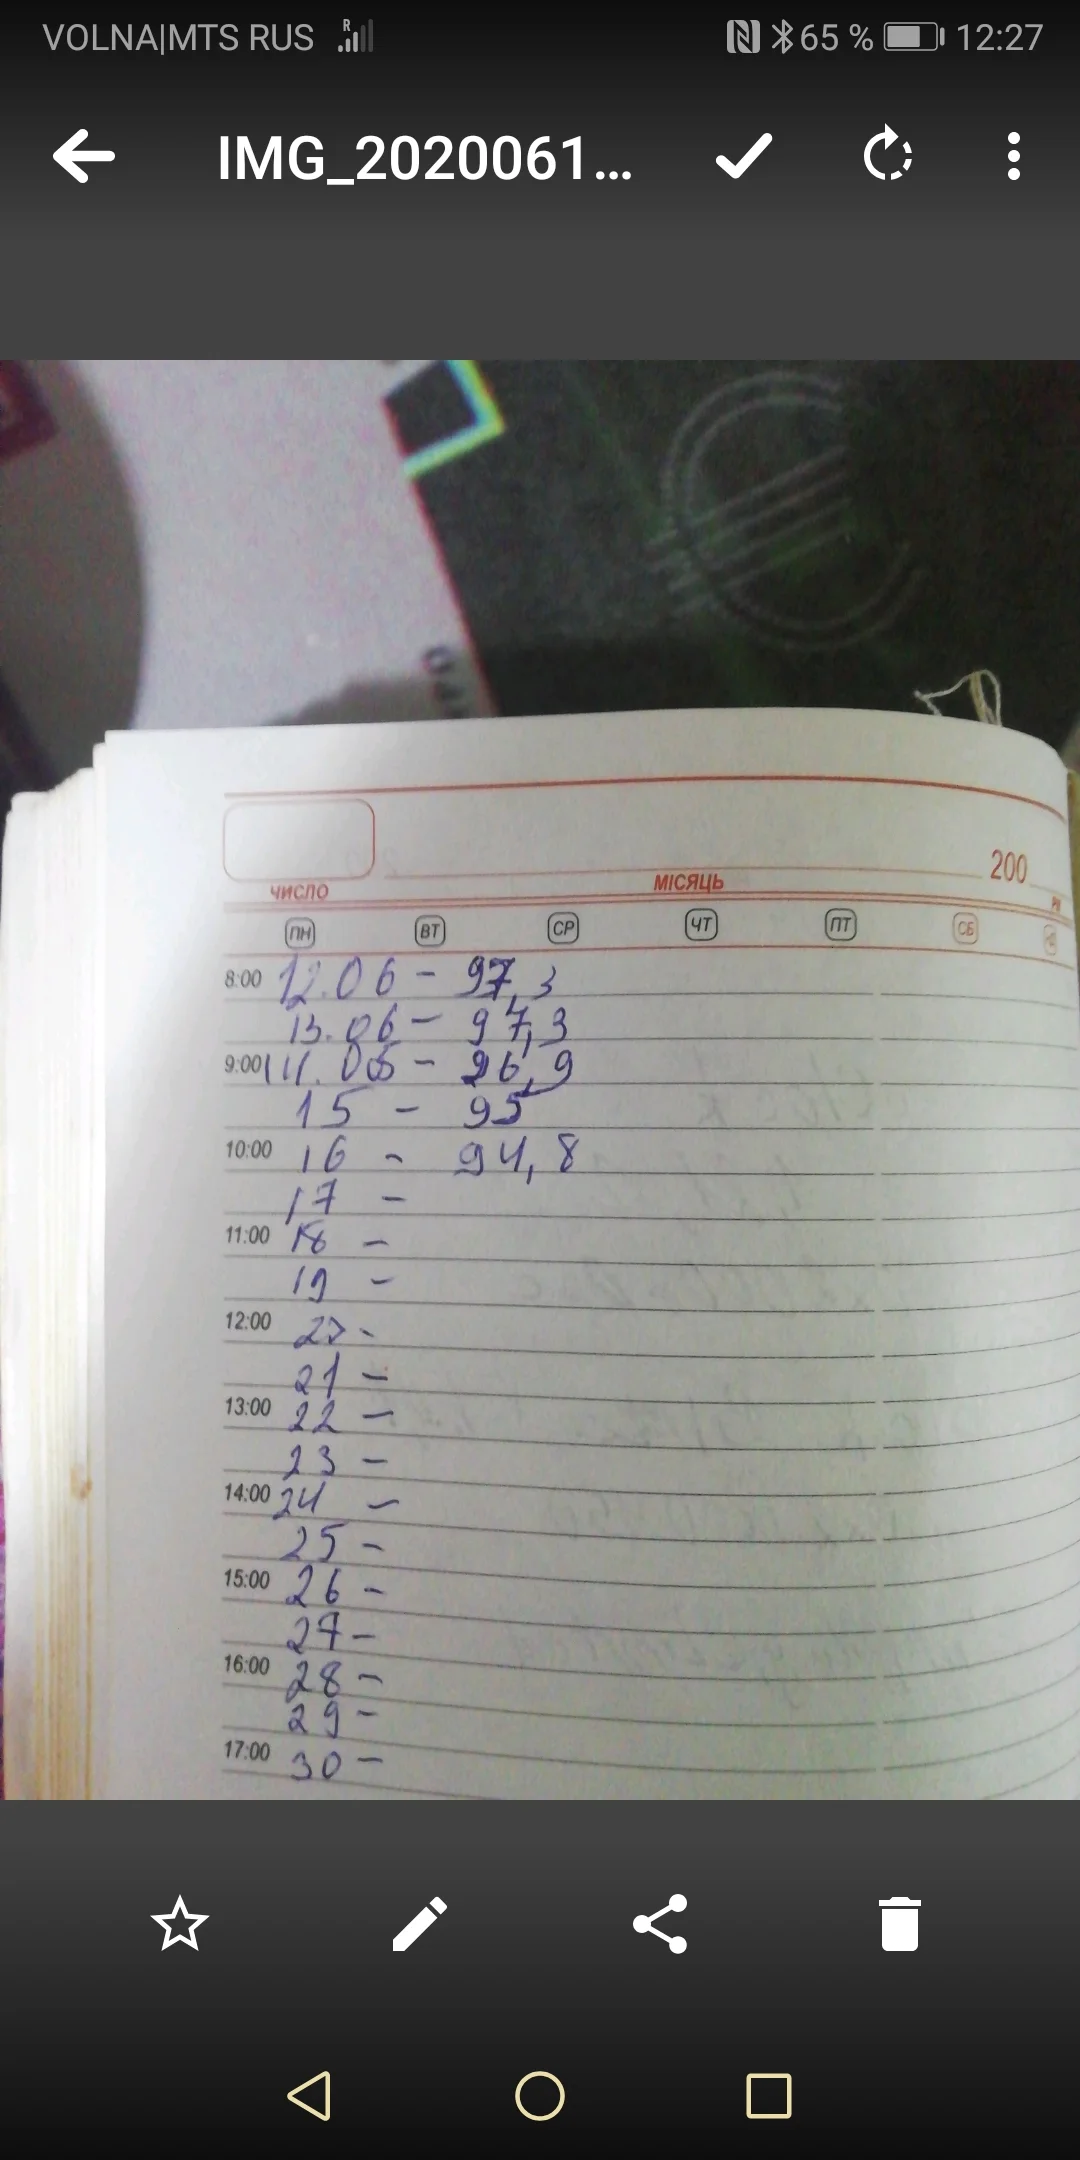 VOLNA|MTS RUS R 65 % 12:27
IMG_2020061...
200
ЧИСЛО МІСЯЦЬ
ПН ВТ СР ЧТ ПТ СБ
8:00 12.06 - 97,3
13.06 - 97,3
9:00 14.06 - 96,9
15 - 95
10:00 16 - 94,8
17 -
11:00 18 -
19 -
12:00 20 -
21 -
13:00 22 -
23 -
14:00 24 -
25 -
15:00 26 -
27 -
16:00 28 -
29 -
17:00 30 -